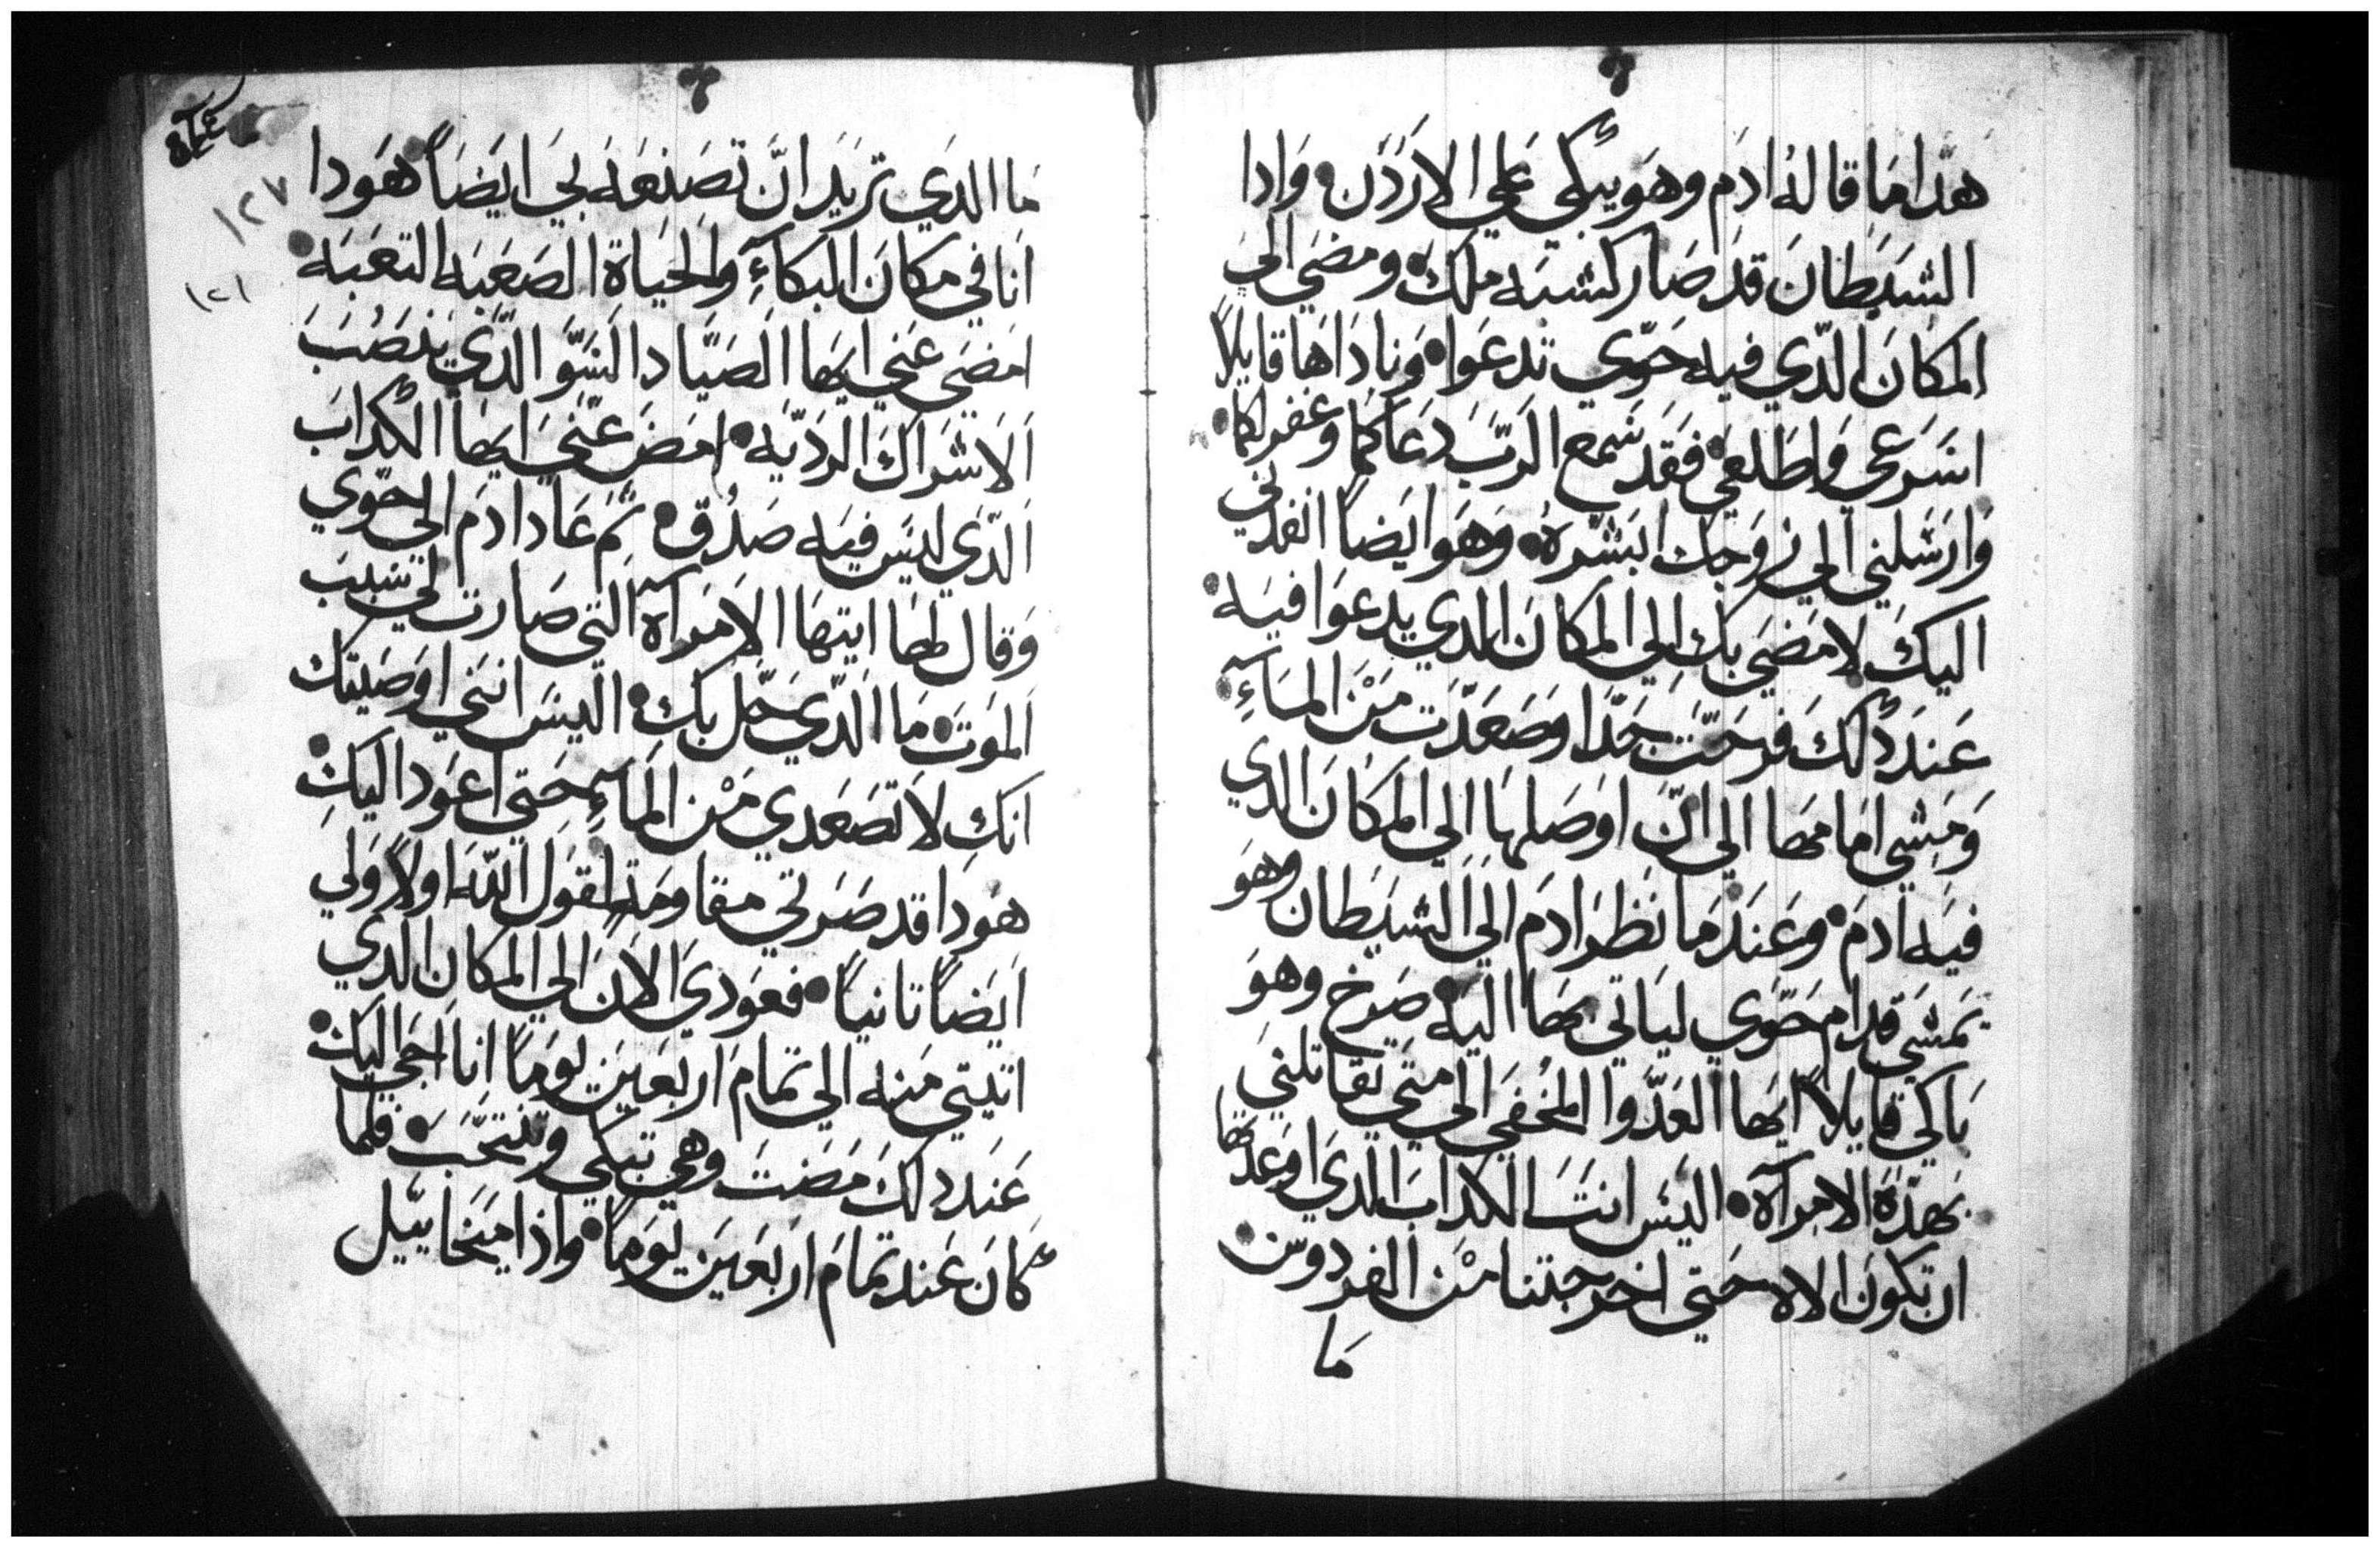 هذا ما قاله ادم وهو يبكي علي الاردن وادا
الشيطان قد صار كشبه ملك ومضي الي
المكان الدي فيه حوي تدعوا وناداها قايلاً
اسرعي واطلعي فقد سمع الرب دعاكما وغفر لكما
وارسلني الي زوجك ابشره وهو ايضاً انفدني
اليك لامضي بك الي المكان الدي يدعوا فيه
عند دلك فرحت جدا وصعدت من المآءِ
ومشي امامها الي ان اوصلها الي المكان الدي
فيه ادم وعندما نظر ادم الي الشيطان وهو
يمشي قدام حوي لياتي بها اليه صرخ وهو
باكي قايلاً ايها العدوا المخفي الي متي تقاتلني
بهده الامرآة اليس انت الكداب الدي اوعدتها
ان تكون الاه حتي اخرجتنا من الفردوس
ما
ما الدي تريد ان تصنعه بي ايضاً هودا
انا في مكان البكآءِ والحياة الصعبه التعبه
امضي عني ايها الصياد السو الدي ينصب
الاشراك الرديه امض عني ايها الكداب
الدي ليس فيه صدق ثم عاد ادم الي حوي
وقال لها ايتها الامرآة التي صارت لي سبب
الموت ما الدي حل بك اليس انني اوصيتك
انك لا تصعدي من المآءِ حتي اعود اليك
هودا قد صرتي مقاومه لقول الله اولاً ولي
ايضاً تانياً فعودي الان الي المكان الدي
اتيتي منه الي تمام اربعين يوماً انا اجي اليك
عند دلك مضت وهي تبكي وتنتحب فلما
كان عند تمام اربعين يوماً واذا ميخاييل
١٢٧
١٢١